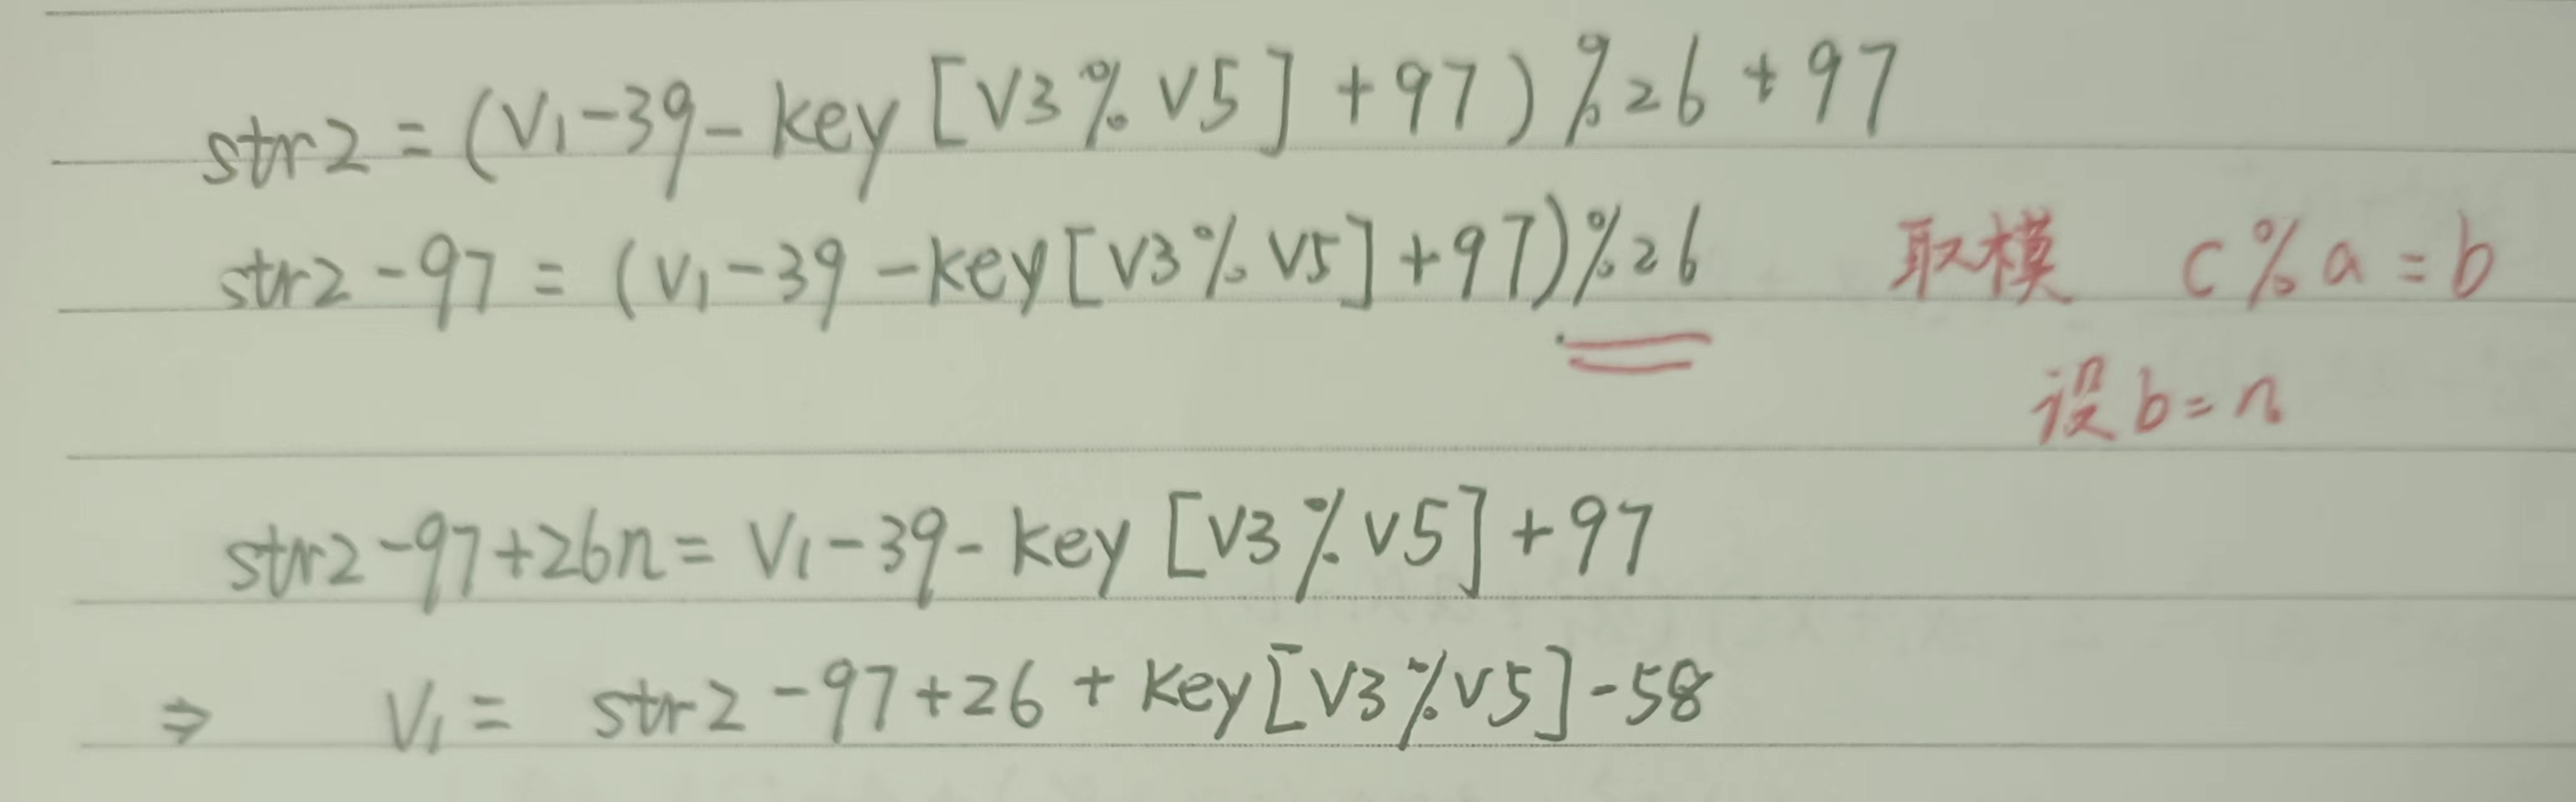 str2 = (V1-39-key[V3%V5]+97)%26+97
str2-97 = (V1-39-key[V3%V5]+97)%26 取模 c%a=b
设b=n
str2-97+26n=V1-39-key[V3%V5]+97
⇒ V1= str2-97+26+key[V3%V5]-58